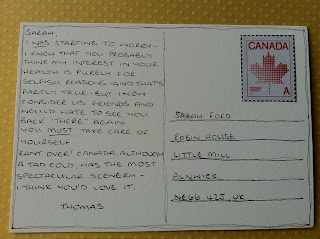 SARAH,
I WAS STARTING TO WORRY-
I KNOW THAT YOU PROBABLY
THINK MY INTEREST IN YOUR
HEALTH IS PURELY FOR
SELFISH REASONS - AND THAT'S
PARTLY TRUE - BUT I NOW
CONSIDER US FRIENDS AND
WOULD HATE TO SEE YOU
BACK "THERE" AGAIN.
YOU MUST TAKE CARE OF
YOURSELF.
RANT OVER! CANADA, ALTHOUGH
A TAD COLD, HAS THE MOST
SPECTACULAR SCENERY -
I THINK YOU'D LOVE IT.
THOMAS
CANADA
A
SARAH FORD
ROBIN HOUSE
LITTLE MILL
ALNWICK
NE66 42J, UK